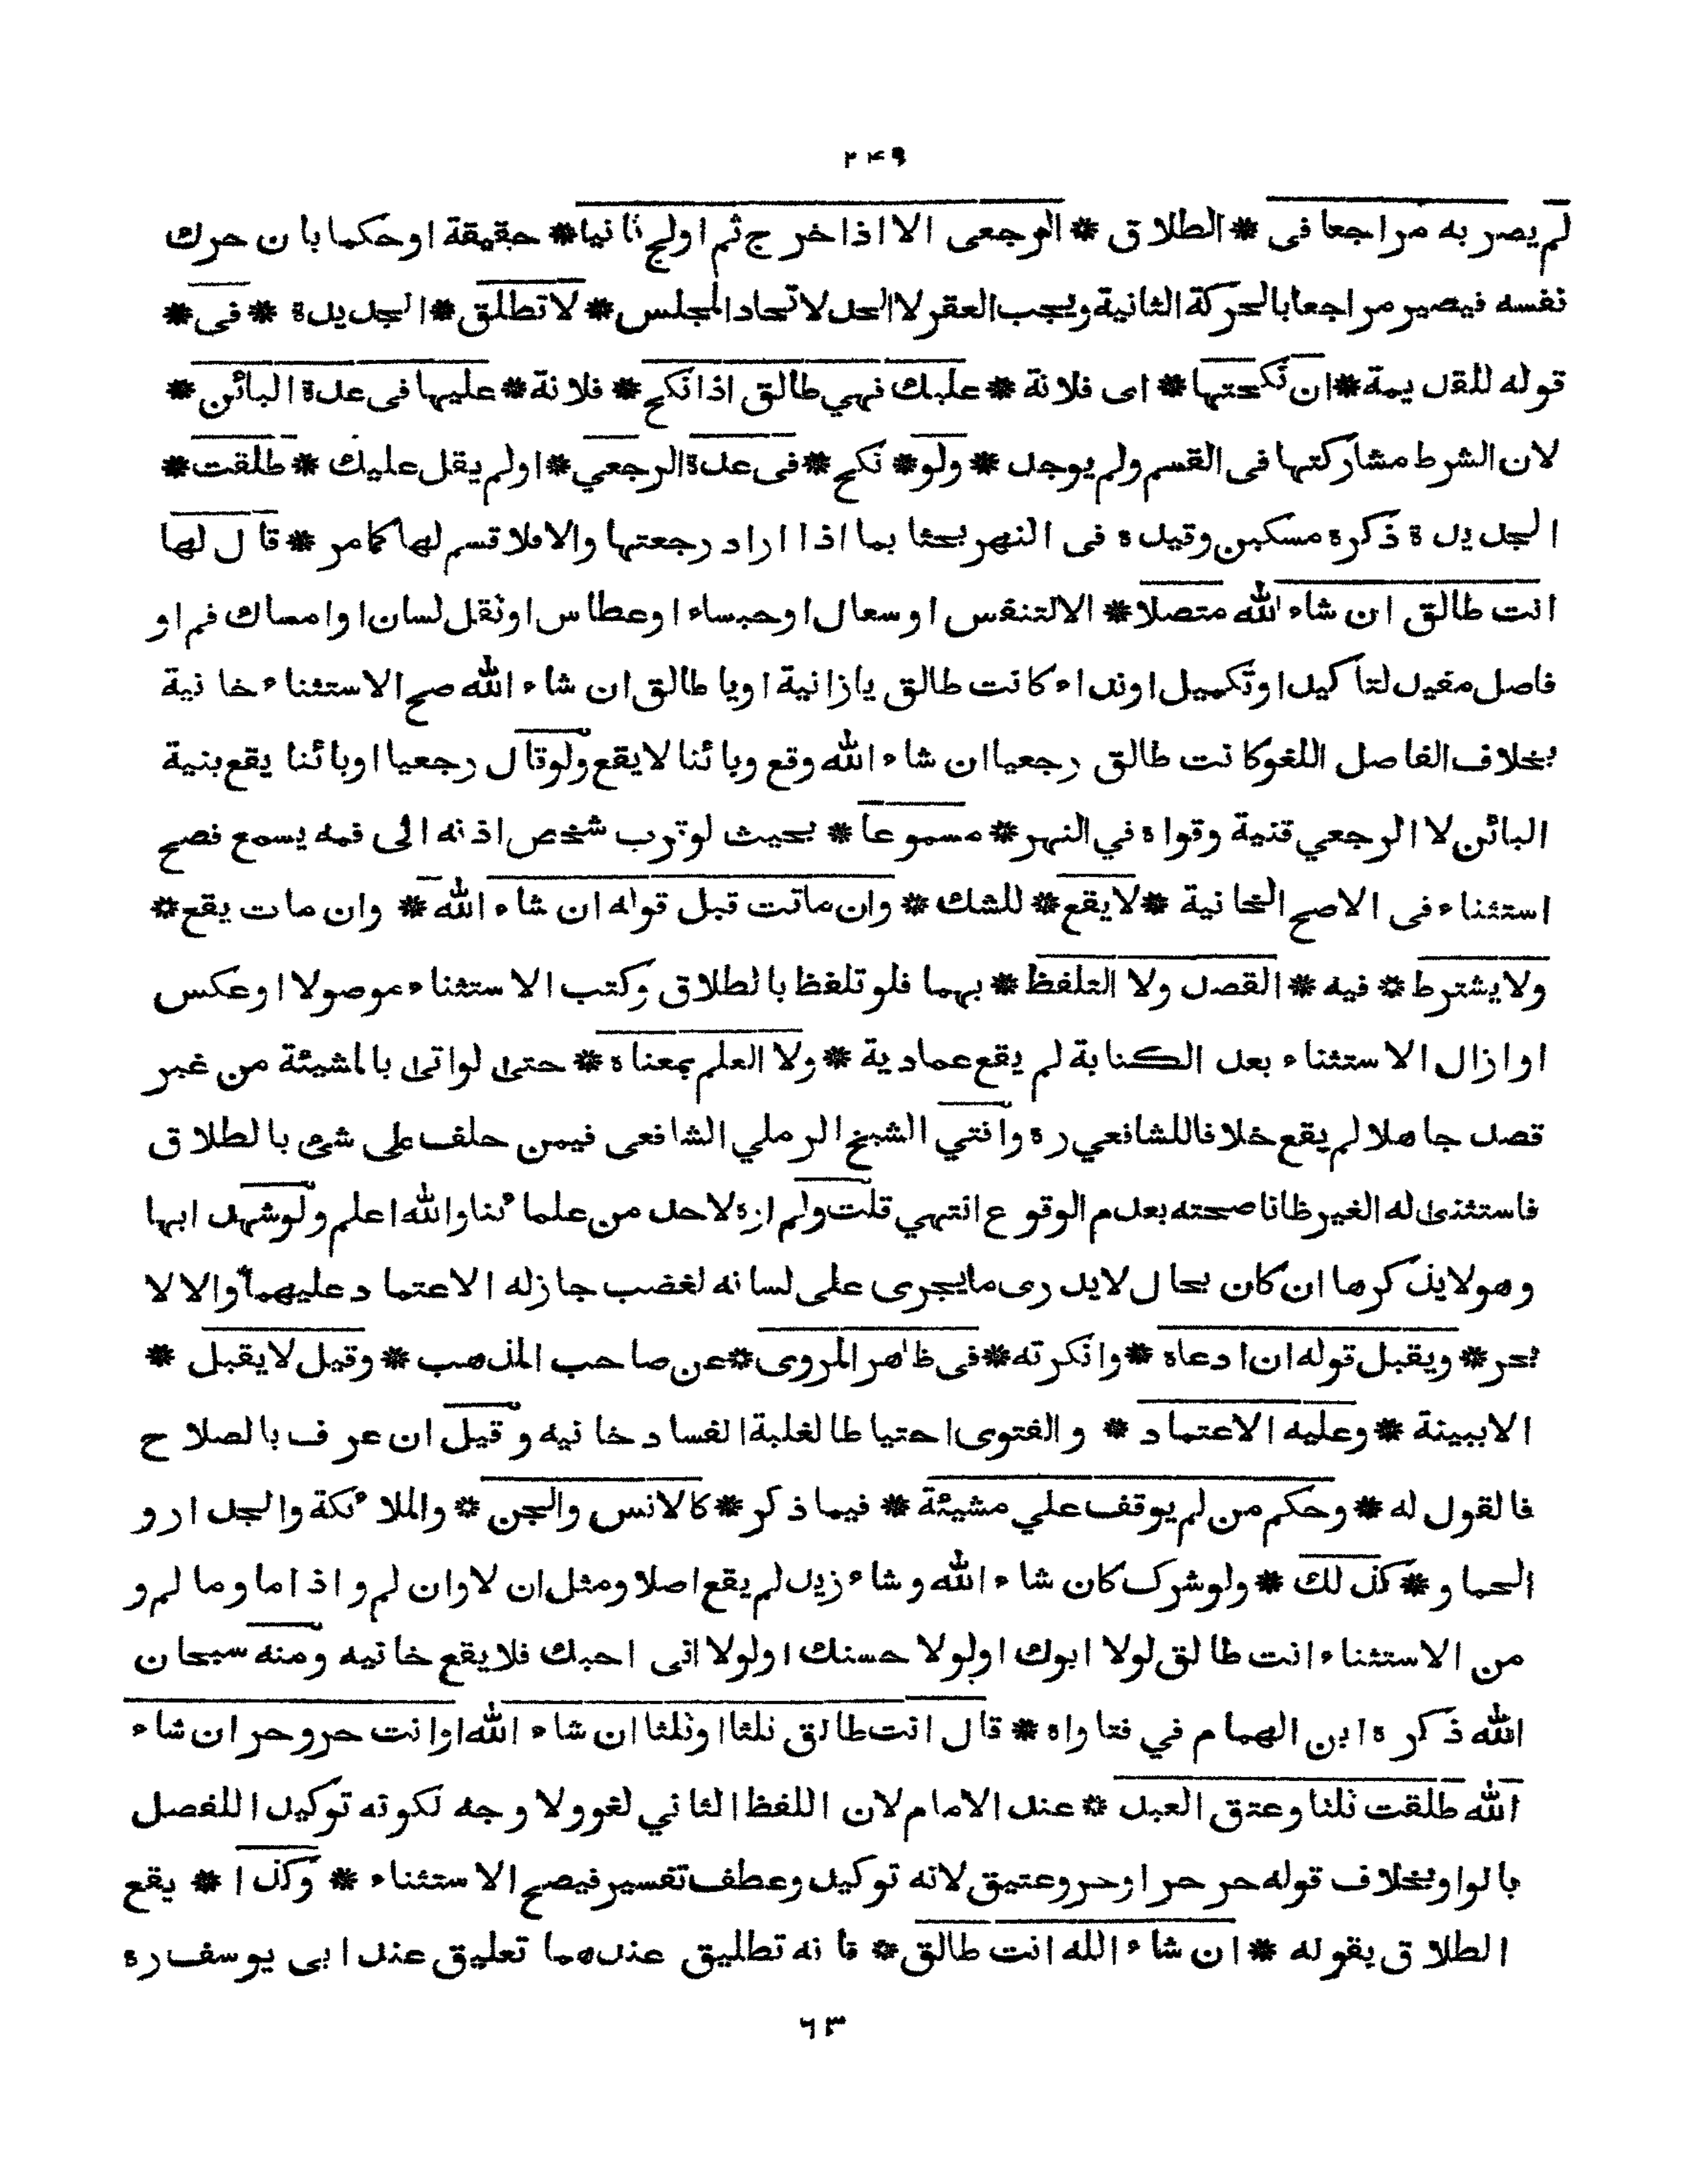 ۲۴۹
لم يصر به مراجعا فى * الطلاق * الرجعى الا اذا خرج ثم اولج ثانيا * حقيقة او حكما بان حرك
نفسه فيصير مراجعا بالحركة الثانية ويجب العقر لا الحد لاتحاد المجلس * لا تطلق * الجديدة * فى *
قوله للقديمة * ان نكحتها * اى فلانة * عليك فهي طالق اذا نكح * فلانة * عليها فى عدة البائن *
لان الشرط مشاركتها فى القسم ولم يوجد * ولو * نكح * فى عدة الرجعي * او لم يقل عليك * طلقت *
الجديدة ذكره مسكين وقيده فى النهر بحثا بما اذا اراد رجعتها والا فلا قسم لها كما مر * قال لها
انت طالق ان شاء الله متصلا * الا لتنفس او سعال او جساء او عطاس او ثقل لسان او امساك فم او
فاصل مفيد لتاكيد او تكميل او نداء كانت طالق يا زانية او يا طالق ان شاء الله صح الاستثناء خانية
بخلاف الفاصل اللغو كانت طالق رجعيا ان شاء الله وقع وبائنا لا يقع ولو قال رجعيا او بائنا يقع بنية
البائن لا الرجعي قنية وقواه في النهر * مسموعا * بحيث لو قرب شخص اذنه الى فمه يسمع فصح
استثناء فى الاصح الخانية * لا يقع * للشك * وان ماتت قبل قوله ان شاء الله * وان مات يقع *
ولا يشترط * فيه * القصد ولا التلفظ * بهما فلو تلفظ بالطلاق وكتب الاستثناء موصولا او عكس
او ازال الاستثناء بعد الكتابة لم يقع عمادية * ولا العلم بمعناه * حتى لو اتى بالمشيئة من غير
قصد جاهلا لم يقع خلافا للشافعي ره وافتي الشيخ الرملي الشافعى فيمن حلف على شئ بالطلاق
فاستثنى له الغير ظانا صحته بعدم الوقوع انتهي قلت ولم اره لاحد من علمائنا والله اعلم ولو شهد ابها
وهو لا يذكرها ان كان بحال لا يدرى ما يجرى على لسانه لغضب جاز له الاعتماد عليهما والا لا
بحر * ويقبل قوله ان ادعاه * وانكرته * فى ظاهر المروى * عن صاحب المذهب * وقيل لا يقبل *
الا ببينة * وعليه الاعتماد * والفتوى احتياطا لغلبة الفساد خانيه وقيل ان عرف بالصلاح
فالقول له * وحكم من لم يوقف علي مشيئة * فيما ذكر * كالانس والجن * والملائكة والجدار و
الحمار * كذلك * ولو شرك كان شاء الله وشاء زيد لم يقع اصلا ومثل ان لا وان لم واذا ما وما لم و
من الاستثناء انت طالق لولا ابوك او لولا حسنك او لولا انى احبك فلا يقع خانيه ومنه سبحان
الله ذكره ابن الهمام في فتاواه * قال انت طالق ثلثا وثلثا ان شاء الله او انت حر وحر ان شاء
الله طلقت ثلثا وعتق العبد * عند الامام لان اللفظ الثاني لغو ولا وجه لكونه توكيدا للفصل
بالواو بخلاف قوله حر حر او حر وعتيق لانه توكيد وعطف تفسير فيصح الاستثناء * وكذا * يقع
الطلاق بقوله * ان شاء الله انت طالق * فانه تطليق عندهما تعليق عند ابى يوسف ره
٦٣